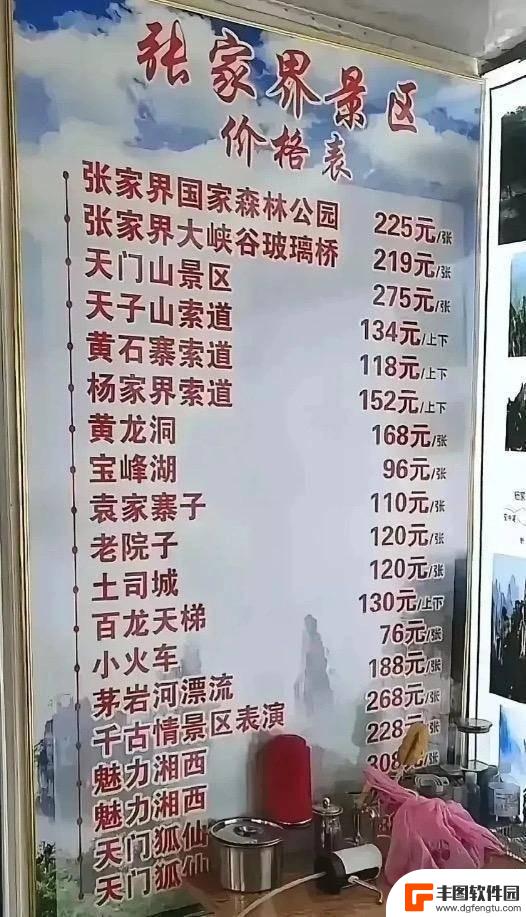 张家界景区
价格表
张家界国家森林公园 225元/张
张家界大峡谷玻璃桥 219元/张
天门山景区 275元/张
天子山索道 134元/上下
黄石寨索道 118元/上下
杨家界索道 152元/上下
黄龙洞 168元/张
宝峰湖 96元/张
袁家寨子 110元/张
老院子 120元/张
土司城 120元/张
百龙天梯 130元/上下
小火车 76元/张
茅岩河漂流 188元/张
千古情景区表演 268元/张
魅力湘西 228元
魅力湘西 308
天门狐仙
天门狐仙
丰图软件园
www.dgfengtu.com